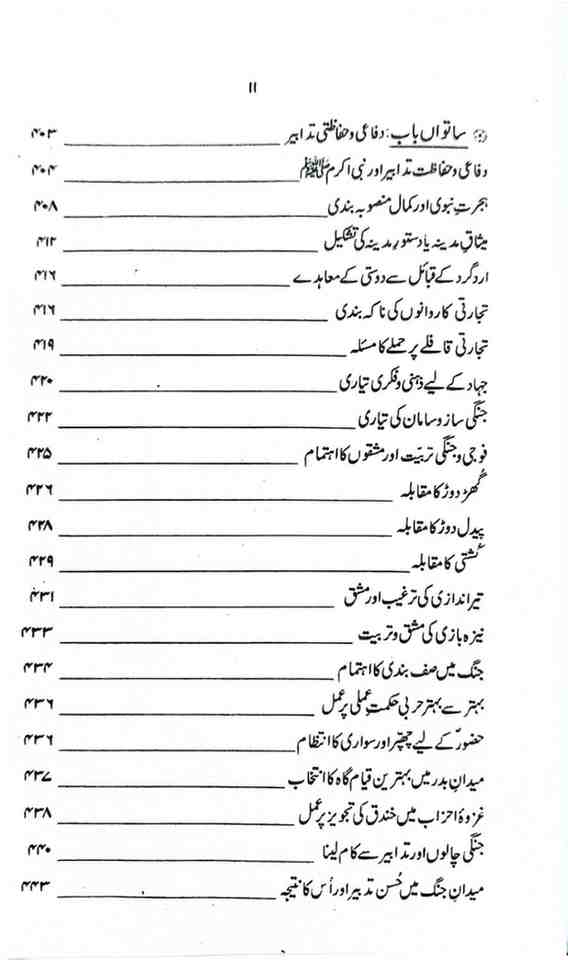 ۱۱
۞ ساتواں باب: دفاعی و حفاظتی تدابیر ۴۰۳
دفاعی و حفاظت تدابیر اور نبی اکرم ﷺ ۴۰۴
ہجرتِ نبوی اور کمال منصوبہ بندی ۴۰۸
میثاقِ مدینہ یا دستورِ مدینہ کی تشکیل ۴۱۲
اردگرد کے قبائل سے دوستی کے معاہدے ۴۱۶
تجارتی کاروانوں کی ناکہ بندی ۴۱۶
تجارتی قافلے پر حملے کا مسئلہ ۴۱۹
جہاد کے لیے ذہنی و فکری تیاری ۴۲۰
جنگی ساز و سامان کی تیاری ۴۲۲
فوجی و جنگی تربیّت اور مشقوں کا اہتمام ۴۲۵
گُھڑ دوڑ کا مقابلہ ۴۲۶
پیدل دوڑ کا مقابلہ ۴۲۸
کُشتی کا مقابلہ ۴۲۹
تیر اندازی کی ترغیب اور مشق ۴۳۱
نیزہ بازی کی مشق و تربیت ۴۳۳
جنگ میں صف بندی کا اہتمام ۴۳۴
بہتر سے بہتر حربی حکمتِ عملی پر عمل ۴۳۶
حضورؐ کے لیے چھپّر اور سواری کا انتظام ۴۳۶
میدانِ بدر میں بہترین قیام گاہ کا انتخاب ۴۳۷
غزوۂ احزاب میں خندق کی تجویز پر عمل ۴۳۸
جنگی چالوں اور تدابیر سے کام لینا ۴۴۰
میدانِ جنگ میں حُسنِ تدبیر اور اُس کا نتیجہ ۴۴۳